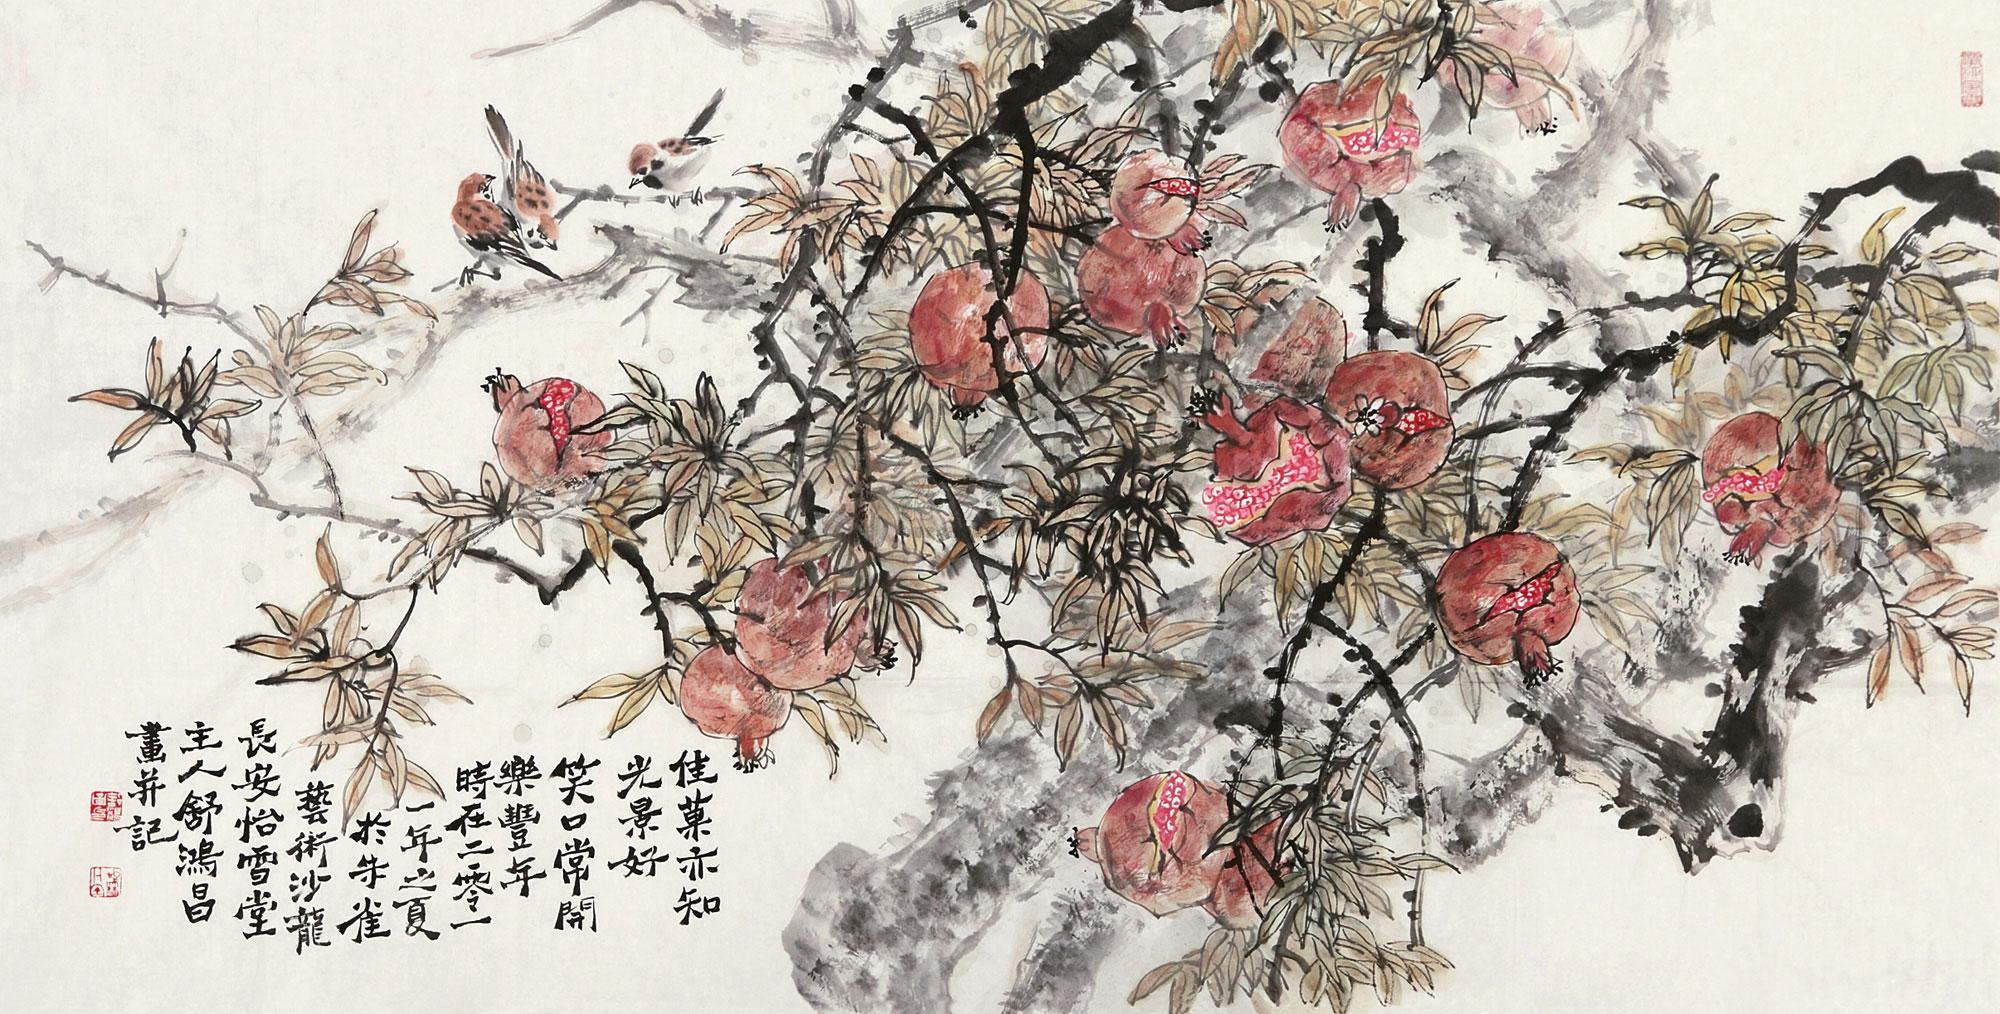 佳菓亦知
光景好
笑口常開
樂豐年
時在二零一
一年之夏
於朱雀
藝術沙龍
長安怡雪堂
主人舒鴻昌
畫并記